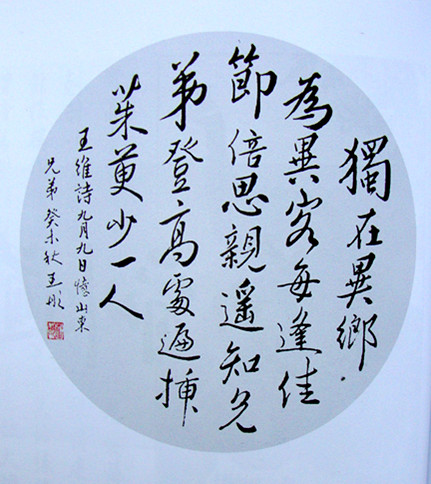 獨在異鄉
為異客每逢佳
節倍思親遥知兄
弟登高處遍插
茱萸少一人
王維詩九月九日憶山東
兄弟癸未秋王彬